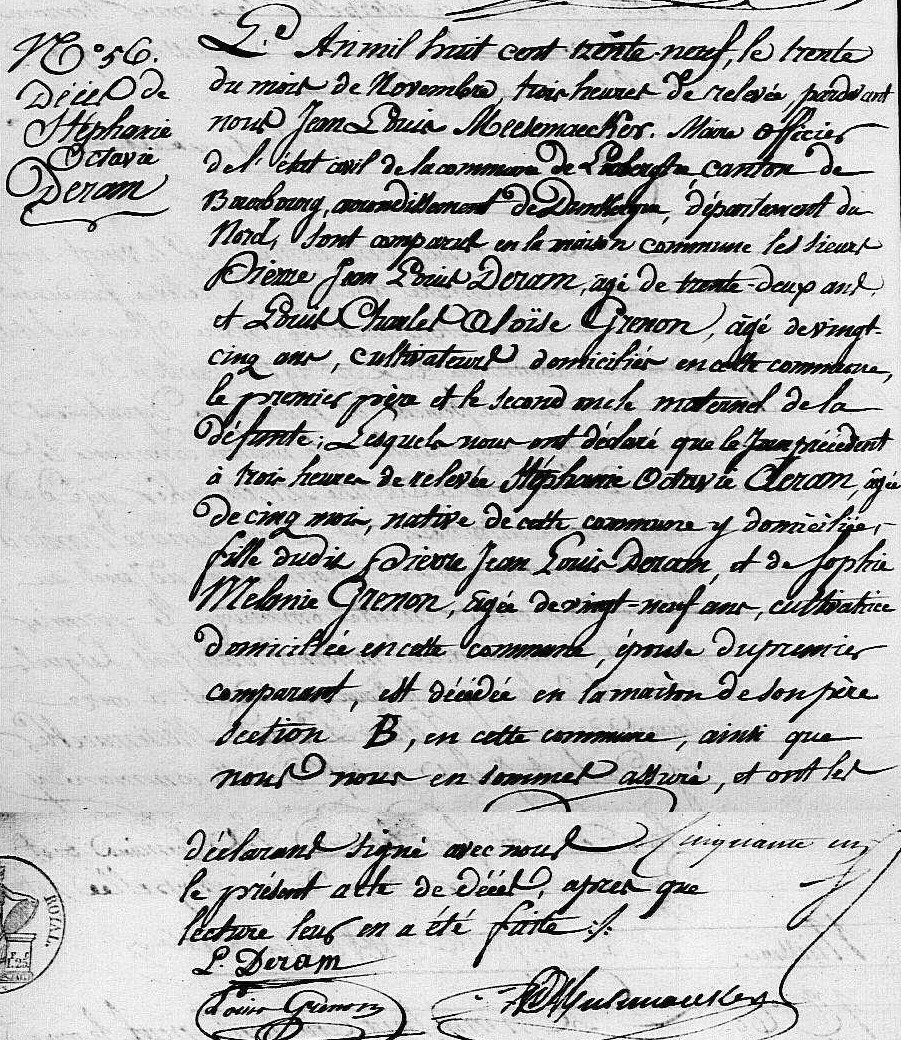 N.° 56.
Décès de
Stéphanie
Octavie
Deram
L'An mil huit cent trente neuf, le trente
du mois de Novembre, trois heures de relevée, pardevant
nous Jean Louis Meesemaecker. Maire officier
de l'état civil de la commune de canton de
Bourbourg, arrondissement de Dunkerque, département du
Nord, sont comparus en la maison commune les sieurs
Pierre Jean Louis Deram, âgé de trente-deux ans,
et Louis Charles Aloïse Grenon, âgé de vingt-
cinq ans, cultivateurs domiciliés en cette commune,
le premier père et le second oncle maternel de la
défunte; Lesquels nous ont déclaré que le Jour précédent
à trois heures de relevée Stéphanie Octavie Deram, âgée
de cinq mois, native de cette commune y domiciliée,
fille dudit Pierre Jean Louis Deram, et de Sophie
Mélanie Grenon, âgée de vingt-neuf ans, cultivatrice
domiciliée en cette commune, épouse du premier
comparant, est décédée en la maison de son père
section B, en cette commune, ainsi que
nous nous en sommes assuré, et ont les
déclarans signé avec nous
Cinquante un
le présent acte de décès, après que
lecture leur en a été faite ./.
ROYAL.
P. Deram
Louis Grenon
Meesemaecker